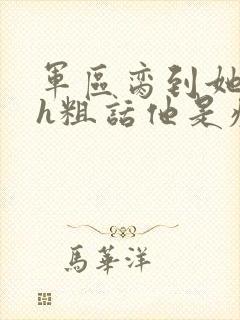 軍區脔到她
h粗話他是
馬華洋